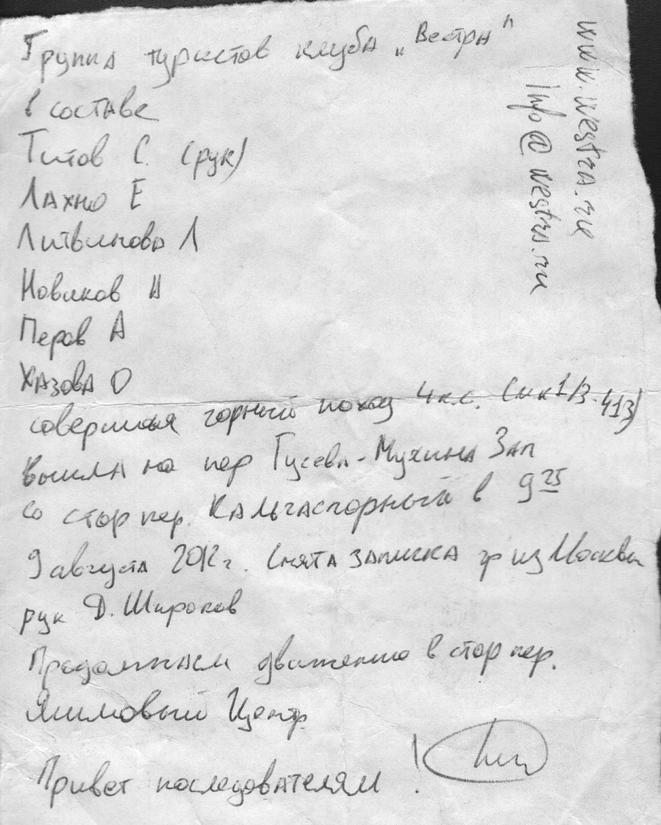 Группа туристов клуба „Вестра"
в составе
Титов С. (рук)
Лахно Е
Литвинова Л
Новиков Н
Перов А
Хазова О
совершая горный поход 4 к.с. (мк 1/3-413)
вышла на пер Гусева-Мухина Зап
со стор пер. Кальчаспорный в 9 25
9 августа 2012 г. Снята записка гр из Москвы
рук Д. Широков
Продолжаем движение в стор пер.
Ячимовый Центр.
Привет последователям!
www.westra.ru
info@westra.ru